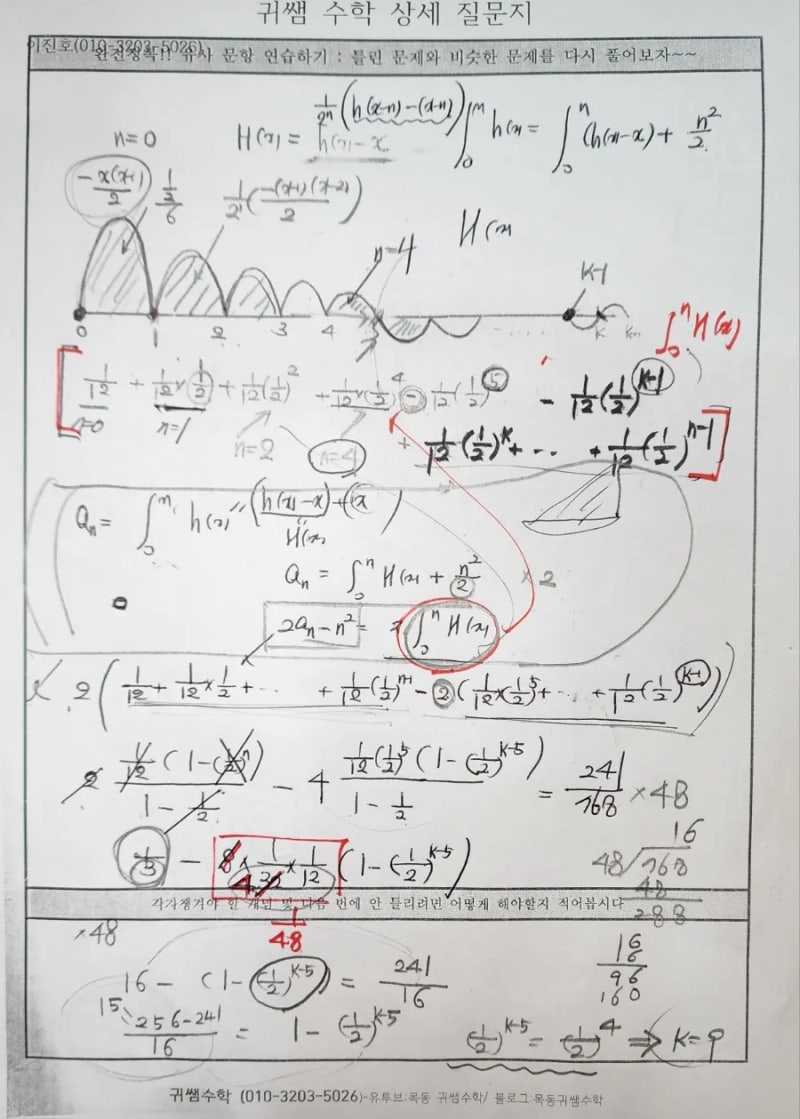 귀쌤 수학 상세 질문지
이진호(010-3203-5026)
완전정복!! 유사 문항 연습하기 : 틀린 문제와 비슷한 문제를 다시 풀어보자~~
1/2ⁿ (h(x-n)-(x-n))
n=0 H(x) = h(x)-x ∫₀ⁿ h(x = ∫₀ⁿ (h(x)-x) + n²/2
-x(x-1)/2 1/2/6 1/2¹(-(x-1)(x-2)/2)
n=4 H(x
K-1
0 1 2 3 4 K K+1
∫₀ⁿ H(x)
[ 1/12 + 1/12×1/2 + 1/12(1/2)² + 1/12×(1/2)⁴ - 1/12(1/2)⁵ - 1/12(1/2)^(K-1)
n=0 n=1 n=2 n=4
+ 1/12(1/2)^K + ··· + 1/12(1/2)^(n-1) ]
Qn = ∫₀ⁿ h(x) " (h(x)-x)+(x)
" H(x
Qn = ∫₀ⁿ H(x + n²/2 ×2
0
2Qn-n² = 2∫₀ⁿ H(x)
2( 1/12 + 1/12×1/2 + ··· + 1/12(1/2)^(n-1) - 2( 1/12×(1/2)⁵ + ··· + 1/12(1/2)^(K-1) ) )
2 1/12(1-(1/2)ⁿ) / 1-1/2 - 4 1/12(1/2)⁵(1-(1/2)^(K-5)) / 1-1/2 = 241/768 ×48
1/3 - 8×1/32×1/12 (1-(1/2)^(K-5))
4
16
48 768
48
288
각자챙겨야 할 개념 및 다음 번에 안 틀리려면 어떻게 해야할지 적어봅시다
×48 1/48
16 - (1-(1/2)^(K-5)) = 241/16
16
6
96
160
15 256-241/16 = 1-(1/2)^(K-5) (1/2)^(K-5) = (1/2)⁴ ⇒ K=9
귀쌤수학 (010-3203-5026)-유투브:목동 귀쌤수학/ 블로그:목동귀쌤수학